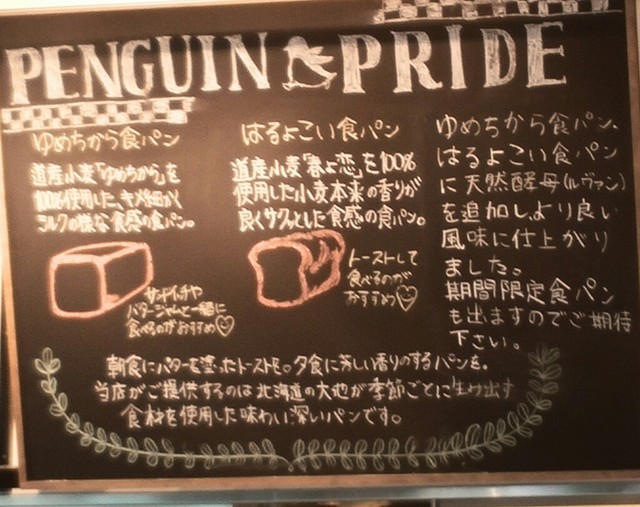 PENGUIN PRIDE
ゆめちから食パン
道産小麦「ゆめちから」を
100%使用した、キメ細かく
ミルクの様な食感の食パン。
サンドイッチや
バタージャムと一緒に
食べるのがおすすめ♡
はるよこい食パン
道産小麦「春よ恋」を100%
使用した小麦本来の香りが
良くサクッとした食感の食パン。
トーストして
食べるのが
おすすめ♡
ゆめちから食パン、
はるよこい食パン
に天然酵母(ルヴァン)
を追加しより良い
風味に仕上がり
ました。
期間限定食パン
も出ますのでご期待
下さい。
朝食にバターを塗ったトーストを。夕食に芳しい香りのするパンを。
当店がご提供するのは北海道の大地が季節ごとに生み出す
食材を使用した味わい深いパンです。